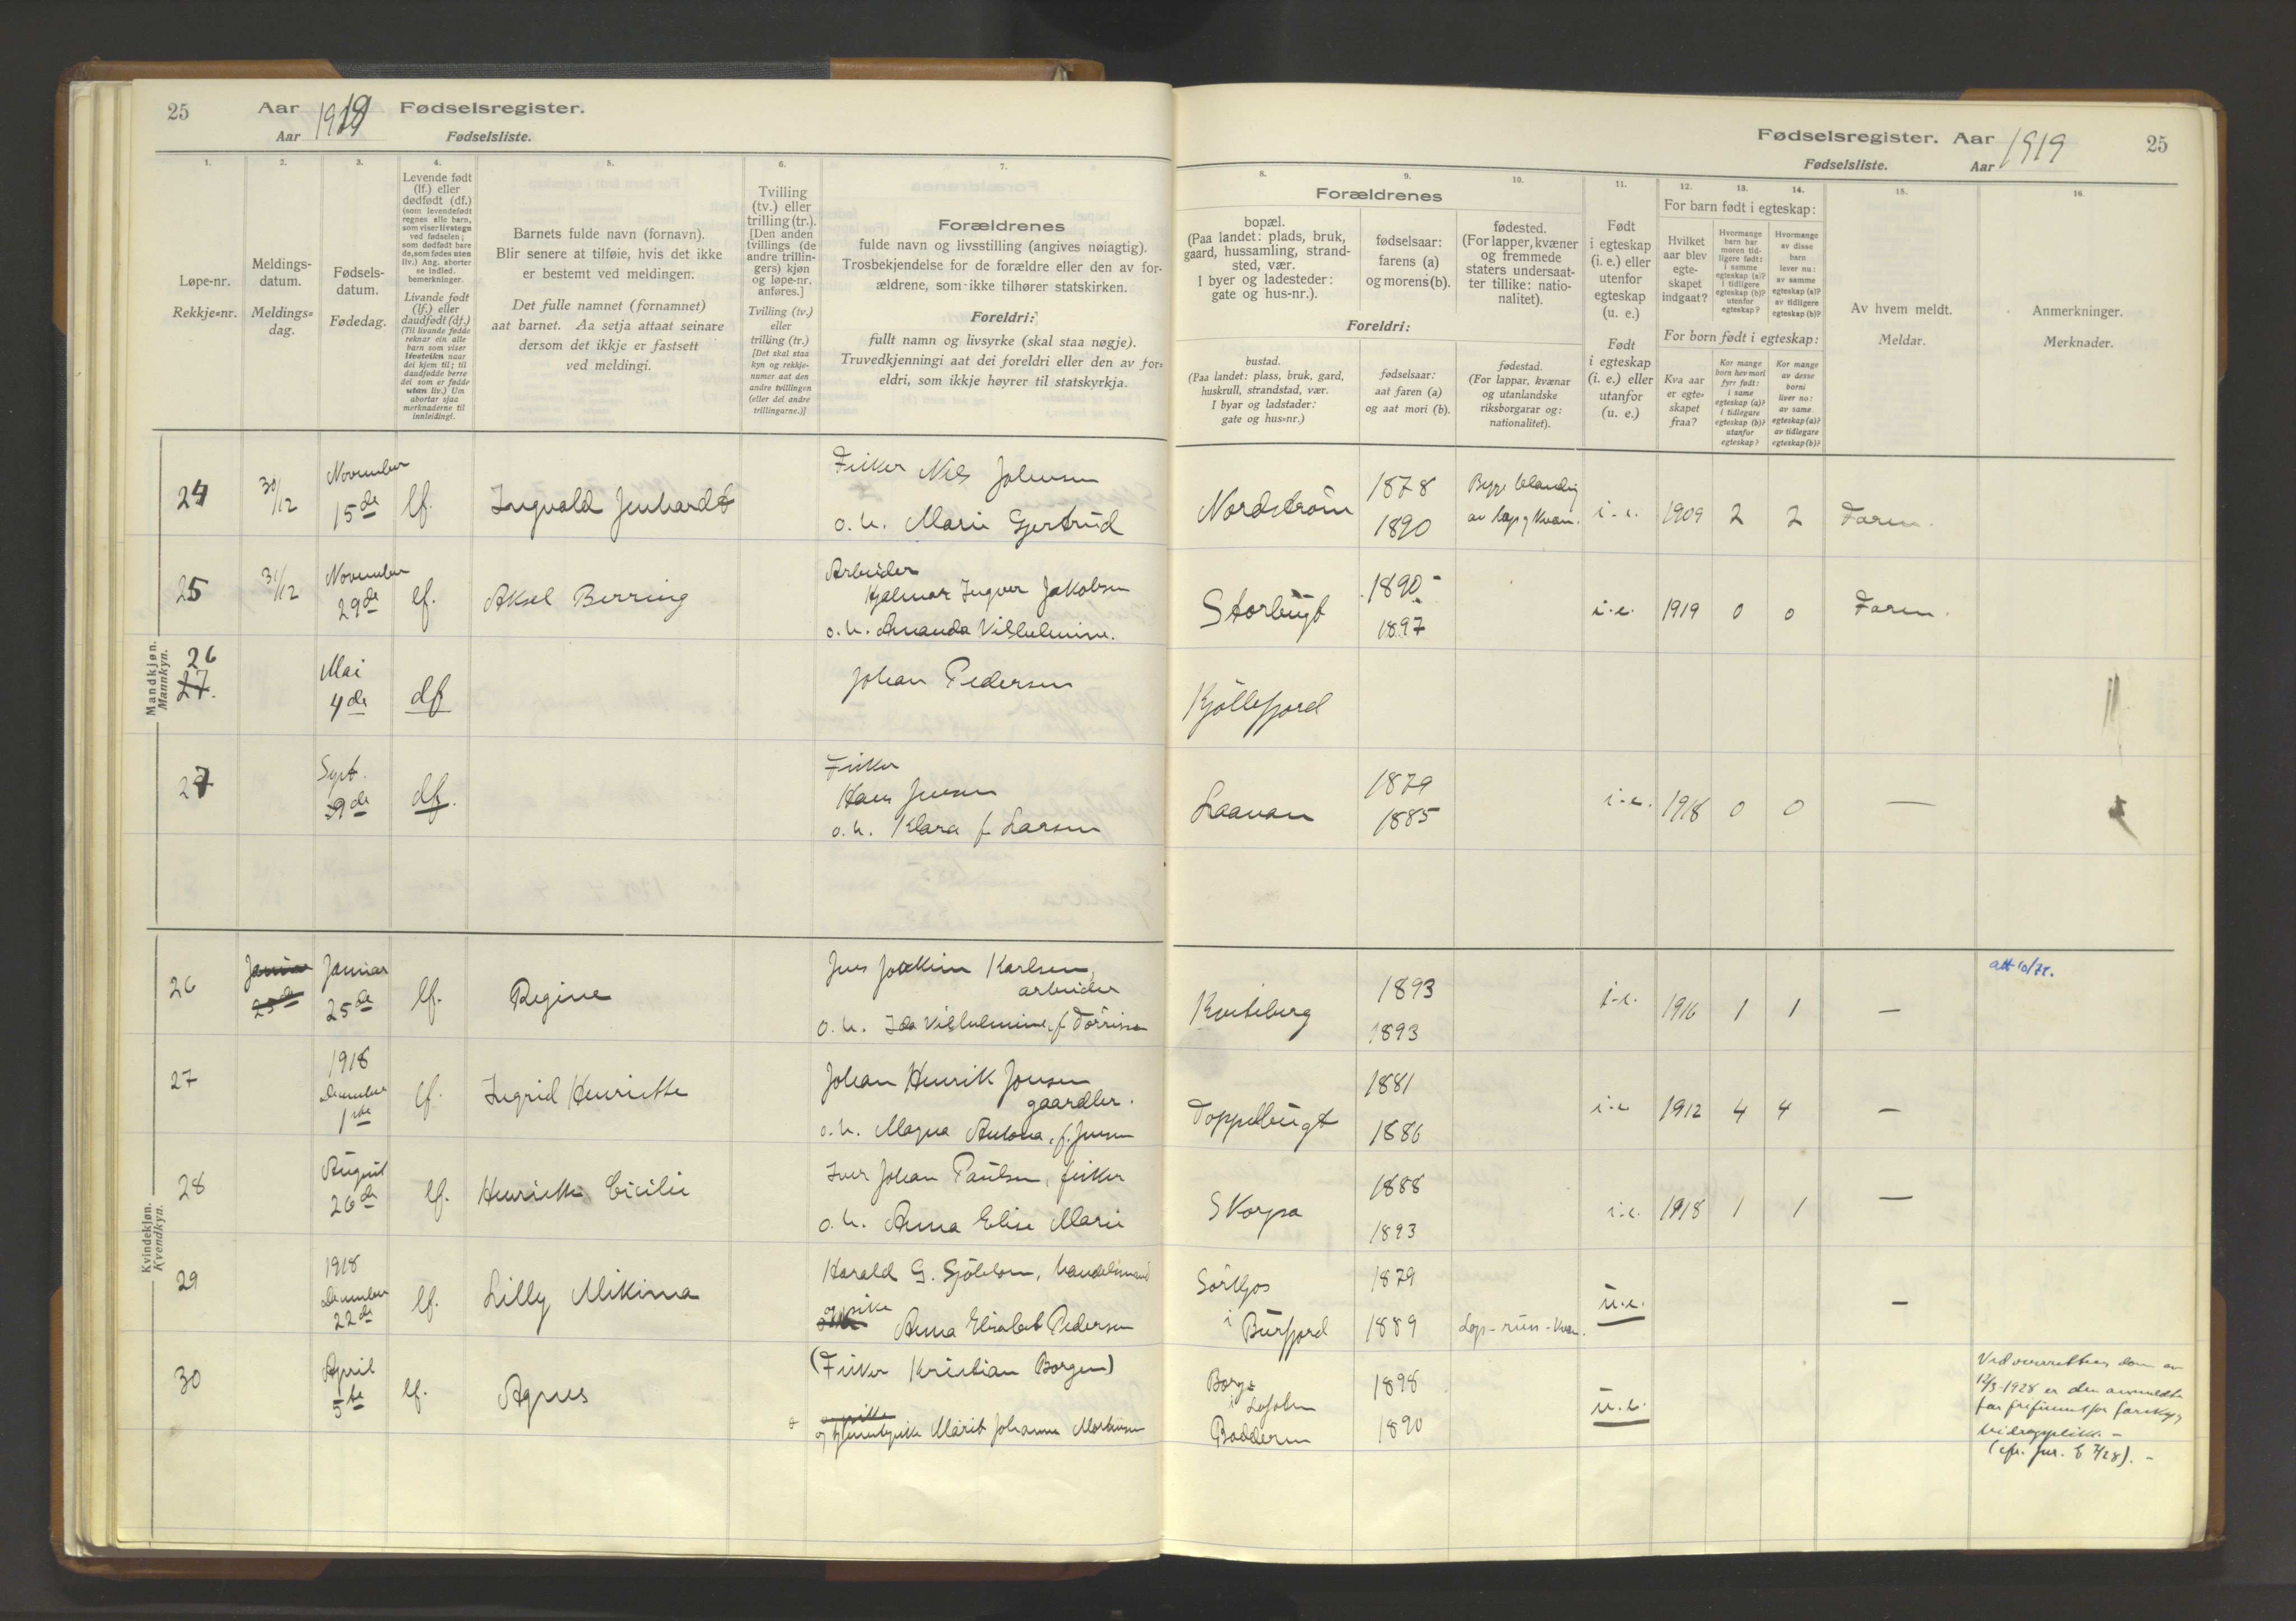 25 Aar 1919 Fødselsregister.
Aar Fødselsliste.
1. 2. 3. 4. 5. 6. 7.
Løpe-nr.
Rekkje=nr.
Meldings-
datum.
Meldings=
dag.
Fødsels-
datum.
Fødedag.
Levende født
(lf.) eller
dødfødt (df.)
(som levendefødt
regnes alle barn,
som viser livstegn
ved fødselen;
som dødfødt bare
de, som fødes uten
liv.) Ang. aborter
se indled.
bemerkninger.
Livande født
(lf.) eller
daudfødt (df.)
(Til livande fødde
reknar ein alle
barn som viser
livsteikn naar
dei kjem til; til
daudfødde berre
dei som er fødde
utan liv.) Um
abortar sjaa
merknaderne til
innleidingi.
Barnets fulde navn (fornavn).
Blir senere at tilføie, hvis det ikke
er bestemt ved meldingen.
Det fulle namnet (fornamnet)
aat barnet. Aa setja attaat seinare
dersom det ikkje er fastsett
ved meldingi.
Tvilling
(tv.) eller
trilling (tr.).
[Den anden
tvillings (de
andre trillin-
gers) kjøn
og løpe-nr.
anføres.]
Tvilling (tv.)
eller
trilling (tr.)
[Det skal staa
kyn og rekkje-
numer aat den
andre tvillingen
(eller dei andre
trillingarne.)]
Forældrenes
fulde navn og livsstilling (angives nøiagtig).
Trosbekjendelse for de forældre eller den av for-
ældrene, som ikke tilhører statskirken.
Foreldri:
fullt namn og livsyrke (skal staa nøgje).
Truvedkjenningi aat dei foreldri eller den av for=
eldri, som ikkje høyrer til statskyrkja.
Mandkjøn.
Mannkyn.
24 30/12 November
15de lf. Ingvald Jenhardt
Fisker Nils Johnsen
o. h. Marie Gjertrud
25 31/12 November
29de lf. Aksel Berring
Arbeider
Hjalmar Ingver Jakobsen
o. h. Amanda Vilhelmine.
26
27. Mai
4de df
Johan Pedersen
27 Sept.
9de df.
Fisker
Hans Jensen
o. h. Klara f. Larsen
Kvindekjøn.
Kvendkyn.
26 Januar
25de Januar
25de lf. Regine
Jens Joakim Karlsen,
arbeider
o. h. Ida Vilhelmine, f.
27 1918
December
1ste lf. Ingrid Henriette
Johan Henrik Jensen
gaardbr.
o. h. Magna Antona, f. Jensen
28 August
26de lf. Henriette Cicilie
Iver Johan Paulsen, fisker
o. h. Anna Elise Marie
29 1918
December
22de lf. Lilly Mikima
Harald G. Sjöblom, handelsmand
og pike Anna Elisabet Pedersen
30 April
5te lf. Agnes
(Fisker Kristian Borgen)
og tjenestepike Marit Johanne Mortensen
Fødselsregister. Aar 1919 25
Fødselsliste. Aar
8. 9. 10. 11. 12. 13. 14. 15. 16.
Forældrenes
bopæl.
(Paa landet: plads, bruk,
gaard, hussamling, strand-
sted, vær.
I byer og ladesteder:
gate og hus-nr.).
fødselsaar:
farens (a)
og morens (b).
fødested.
(For lapper, kvæner
og fremmede
staters undersaat-
ter tillike: natio-
nalitet).
Foreldri:
bustad.
(Paa landet: plass, bruk, gard,
huskrull, strandstad, vær.
I byar og ladstader:
gate og hus=nr.)
fødselsaar:
aat faren (a)
og aat mori (b).
fødestad.
(For lappar, kvænar
og utanlandske
riksborgarar og:
nationalitet).
Født
i egteskap
(i. e.) eller
utenfor
egteskap
(u. e.)
Født
i egteskap
(i. e.) eller
utanfor
(u. e.)
For barn født i egteskap:
Hvilket
aar blev
egte-
skapet
indgaat?
Hvormange
barn har
moren tid-
ligere født:
i samme
egteskap (a)?
i tidligere
egteskap (b)?
utenfor
egteskap?
Hvormange
av disse
barn
lever nu:
av samme
egteskap (a)?
av tidligere
egteskap (b)?
For born født i egteskap:
Kva aar
er egte=
skapet
fraa?
Kor mange
born hev mori
fyrr født:
i same
egteskap (a)?
i tidlegare
egteskap (b)?
utanfor
egteskap?
Kor mange
av desse
borni
liver no:
av same
egteskap (a)?
av tidlegare
egteskap (b)?
Av hvem meldt.
Meldar.
Anmerkninger.
Merknader.
Nordström 1878
1890 Begge blanding
av lap og kvæn. i.e. 1909 2 2 Faren.
Storbugt 1890
1897 i.e. 1919 0 0 Faren.
Kjöllefjord
Laavan 1879
1885 i.e. 1918 0 0 —
Kviteberg 1893
1893 i.e. 1916 1 1 —
att 10/72.
Toppelbugt 1881
1886 i.e 1912 4 4 —
Skorpa 1888
1893 i.e. 1918 1 1 —
i Burfjord 1879
1889 Lap- - kvæn. u.e. —
Borge
i Lofoten
Badderen 1898
1890 u.e.
Ved overrettens dom av
12/3-1928 er den anmeldte
far frifunnet for farskap og
bidragsplikt. -
(cfr. jur. 7/28). -